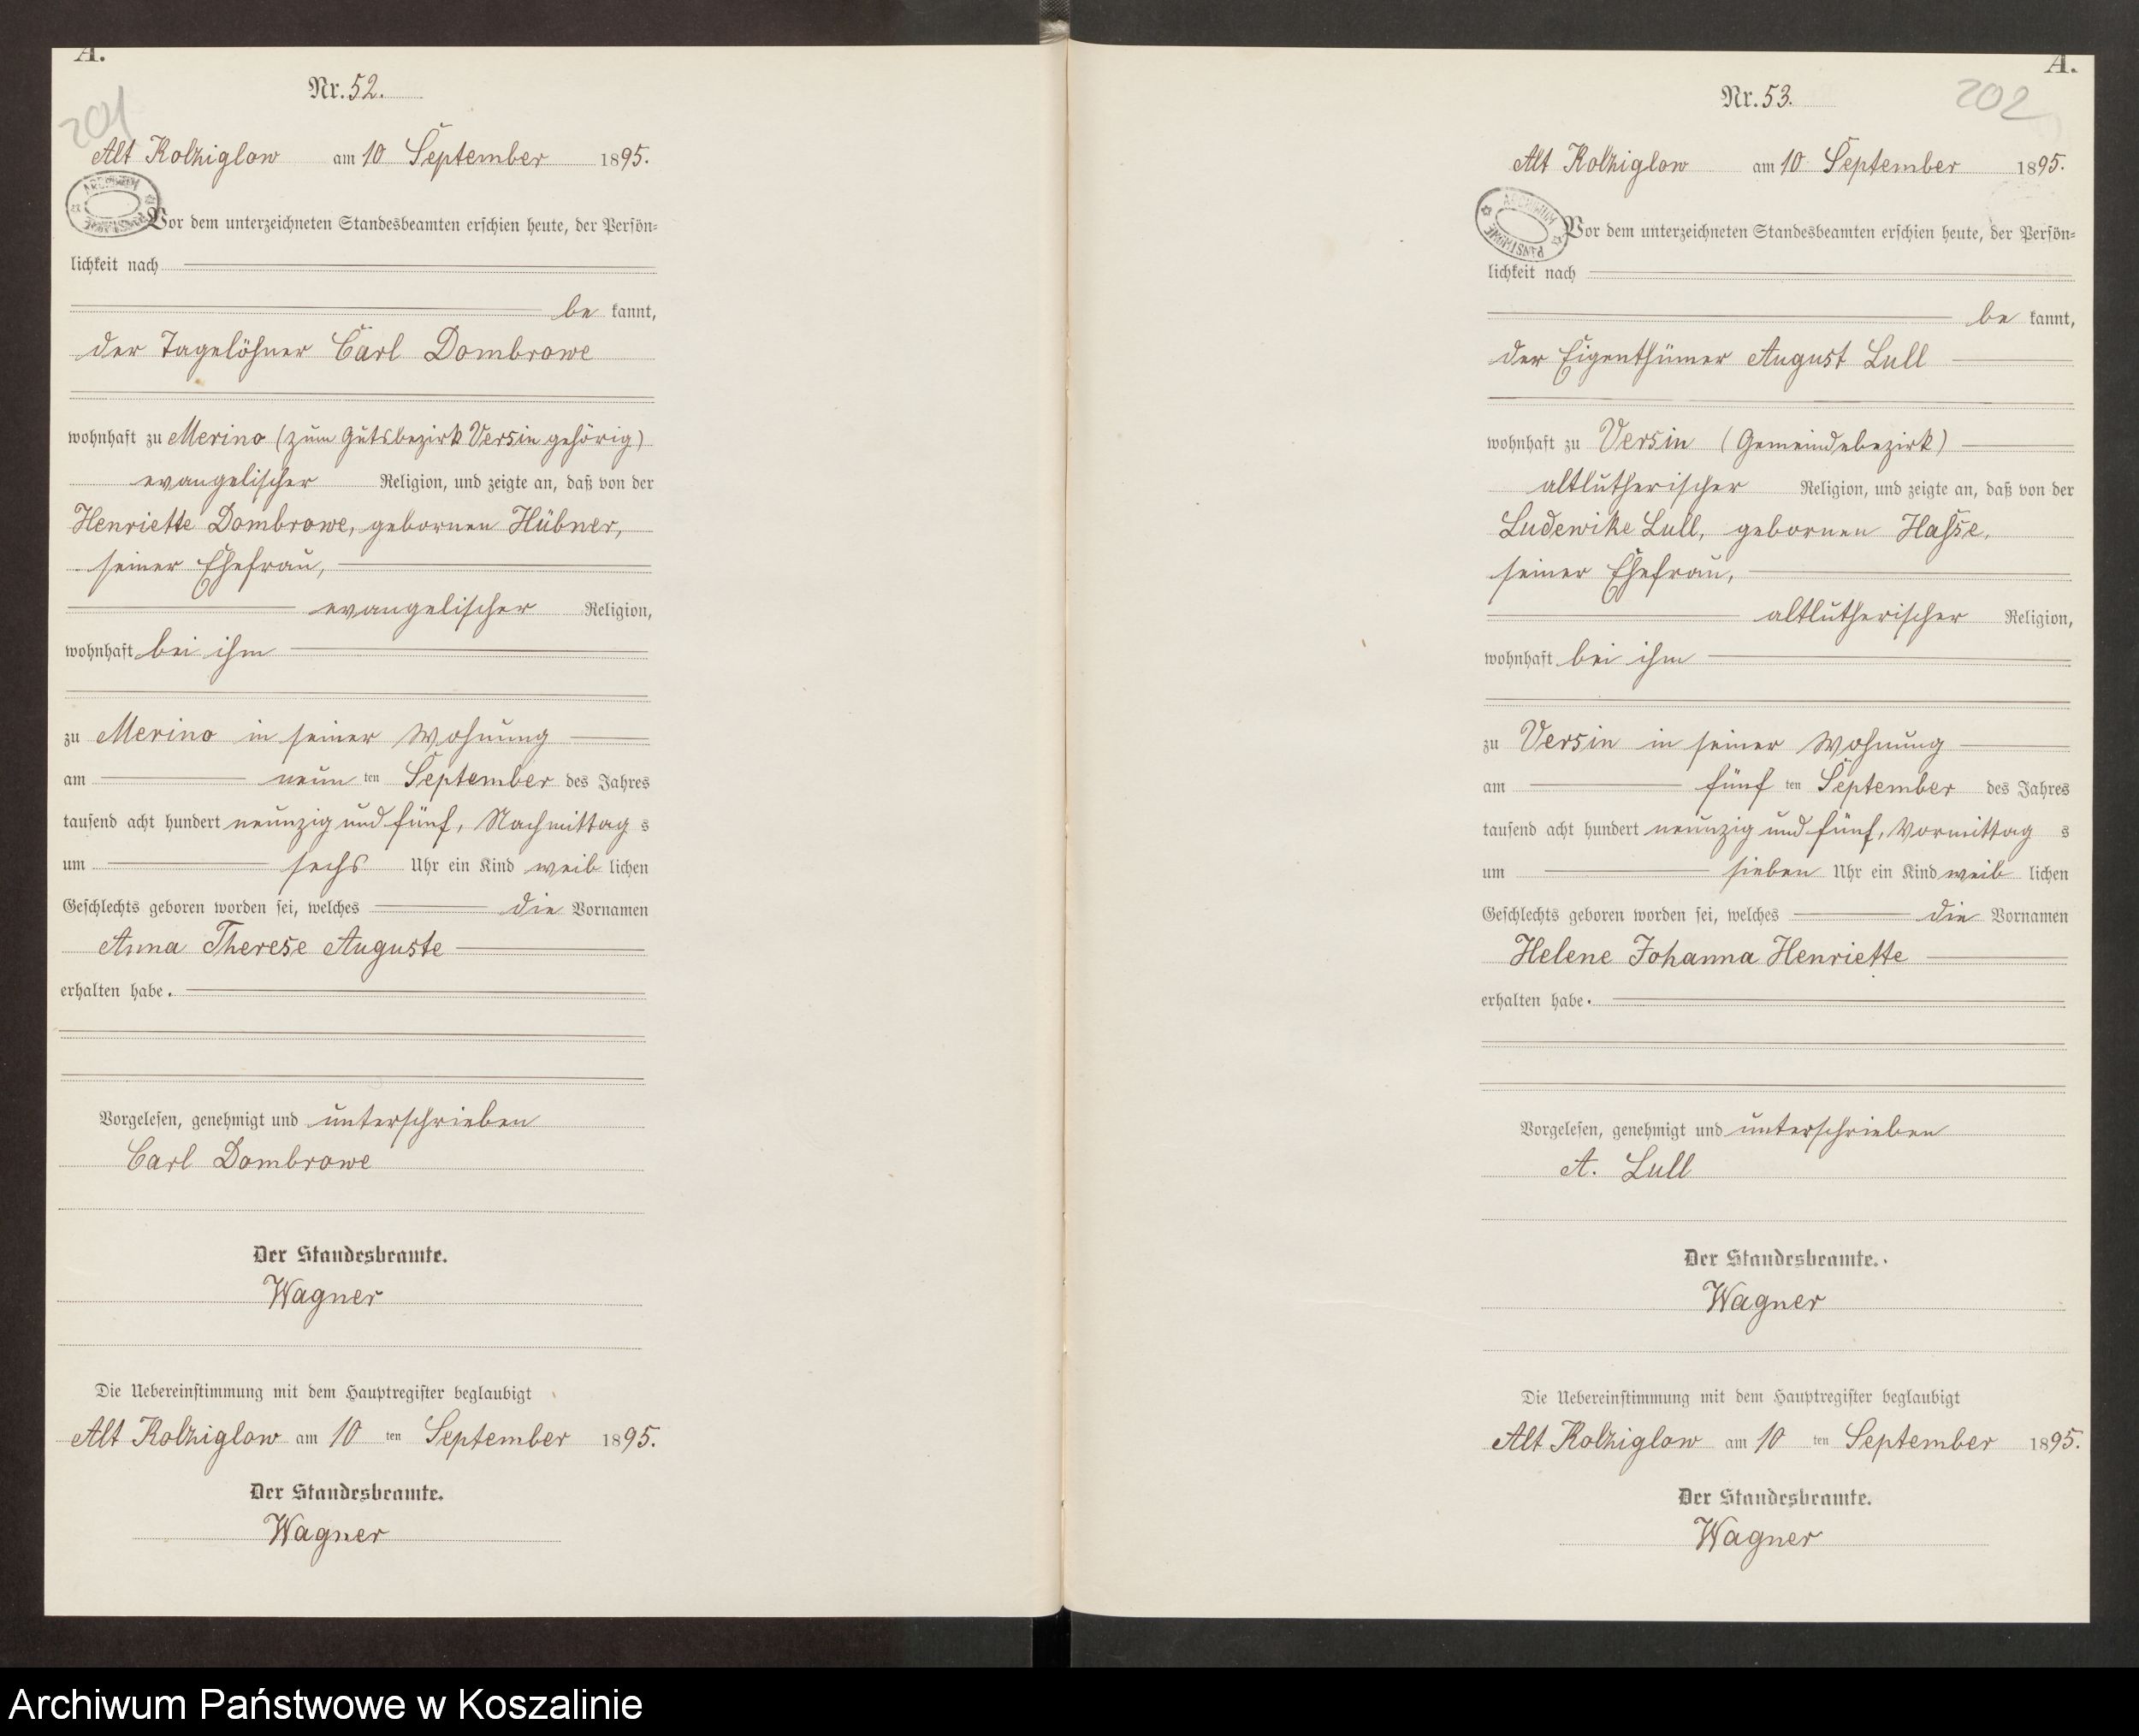 A.
201
Nr. 52.
Alt Kolziglow am 10 September 1895.
ARCHIWUM PAŃSTWOWE
Vor dem unterzeichneten Standesbeamten erschien heute, der Persön-
lichkeit nach
be kannt,
der Tagelöhner Carl Dombrowe
wohnhaft zu Merino (zum Gutsbezirk Versin gehörig)
evangelischer Religion, und zeigte an, daß von der
Henriette Dombrowe, gebornen Hübner,
seiner Ehefrau,
evangelischer Religion,
wohnhaft bei ihm
zu Merino in seiner Wohnung
am neun ten September des Jahres
tausend acht hundert neunzig und fünf, Nachmittag s
um sechs Uhr ein Kind weib lichen
Geschlechts geboren worden sei, welches die Vornamen
Anna Therese Auguste
erhalten habe.
Vorgelesen, genehmigt und unterschrieben
Carl Dombrowe
Der Standesbeamte.
Wagner
Die Uebereinstimmung mit dem Hauptregister beglaubigt
Alt Kolziglow am 10 ten September 1895.
Der Standesbeamte.
Wagner
A.
202
Nr. 53.
Alt Kolziglow am 10 September 1895.
ARCHIWUM PAŃSTWOWE
Vor dem unterzeichneten Standesbeamten erschien heute, der Persön-
lichkeit nach
be kannt,
der Eigenthümer August Lull
wohnhaft zu Versin (Gemeindebezirk)
altlutherischer Religion, und zeigte an, daß von der
Ludewike Lull, gebornen Hasse,
seiner Ehefrau,
altlutherischer Religion,
wohnhaft bei ihm
zu Versin in seiner Wohnung
am fünf ten September des Jahres
tausend acht hundert neunzig und fünf, Vormittag s
um sieben Uhr ein Kind weib lichen
Geschlechts geboren worden sei, welches die Vornamen
Helene Johanna Henriette
erhalten habe.
Vorgelesen, genehmigt und unterschrieben
A. Lull
Der Standesbeamte.
Wagner
Die Uebereinstimmung mit dem Hauptregister beglaubigt
Alt Kolziglow am 10 ten September 1895.
Der Standesbeamte.
Wagner
Archiwum Państwowe w Koszalinie